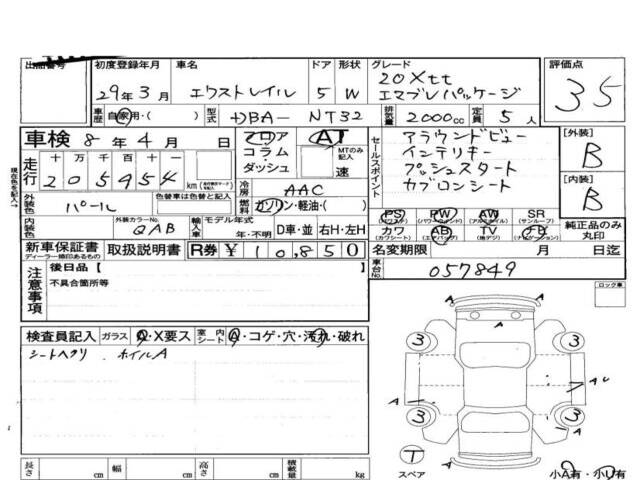 初度登録年月 車名 ドア 形状 グレード 評価点
29年3月 エクストレイル 5 W 20Xtt
エマブレパッケージ 35
車歴 自家用・( ) 型式 DBA- NT32 排気量 2000cc 定員 5人
車検 8年4月 日 フロア AT
コラム MTのみ記入
ダッシュ 速
セールスポイント
アラウンドビュー
インテリキー
プッシュスタート
カブロンシート
[外装] B
[内装] B
現在色を記入→
走行 十万千百十一
205954 km
冷房 AAC
外装色 パール 色替車は色替と記入
燃料 ガソリン・軽油・( )
内装色 外装カラーNo. QAB 輸入車 モデル年式 年・不明 D車・並 右H・左H
PS PW AW SR
(パワステ) (パワーウィンドウ) (アルミホイル) (サンルーフ)
カワ AB TV ナビ
(カワシート) (エアバッグ) (地デジ) (ナビゲーション)
純正品のみ丸印
新車保証書 取扱説明書 R券 ¥10,850
ディーラー捺印あるもの
名変期限 月 日迄
車台No. 057849
注意事項
後日品【 】
不具合箇所等
ロック車
検査員記入 ガラス A・X要ス 室内シート A・コゲ・穴・汚れ・破れ
シートヘタリ ホイルA
A A
3 3
A U
A A
3 3
T
スペア
小A有・小U有
長さ cm 幅 cm 高さ cm 積載量 kg